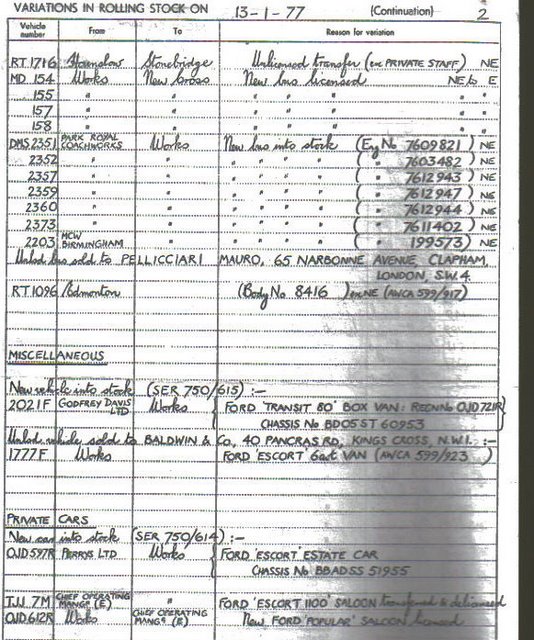 VARIATIONS IN ROLLING STOCK ON 13-1-77 (Continuation) 2
Vehicle number From To Reason for variation
RT 1716 Hounslow Stonebridge Unlicensed transfer (ex PRIVATE STAFF) NE
MD. 154 Works New Cross New bus licensed NE to E
155 " " " " "
157 " " " " "
158 " " " " "
DMS 2351 PARK ROYAL COACHWORKS Works New bus into stock (Eng No 7609821) NE
2352 " " " " " " ( " 7603482) NE
2357 " " " " " " ( " 7612943) NE
2359 " " " " " " ( " 7612947) NE
2360 " " " " " " ( " 7612944) NE
2373 " " " " " " ( " 7611402) NE
2203 MCW BIRMINGHAM " " " " " ( " 199573) NE
Unlcd bus sold to PELLICCIARI MAURO, 65 NARBONNE AVENUE, CLAPHAM,
LONDON, S.W.4.
RT 1096 Edmonton (Body No 8416) ex NE (AWCA 599/917)
MISCELLANEOUS
New vehicle into stock (SER 750/615) :-
2021F GODFREY DAVIS LTD Works FORD 'TRANSIT 80' BOX VAN: REGN No OJD 721R
CHASSIS No BD05ST 60953
Unlcd vehicle sold to BALDWIN & Co, 40 PANCRAS RD, KINGS CROSS, N.W.1. :-
1777F Works FORD 'ESCORT' 6cwt VAN (AWCA 599/923)
PRIVATE CARS
New car into stock (SER 750/614) :-
OJD 597R PERRYS LTD Works FORD 'ESCORT' ESTATE CAR
CHASSIS No BBADSS 51955
7M CHIEF OPERATING MANGR (E) " FORD 'ESCORT 1100' SALOON transferred & delicensed
OJD 612R Works CHIEF OPERATING MANGR (E) New FORD 'POPULAR' SALOON licensed